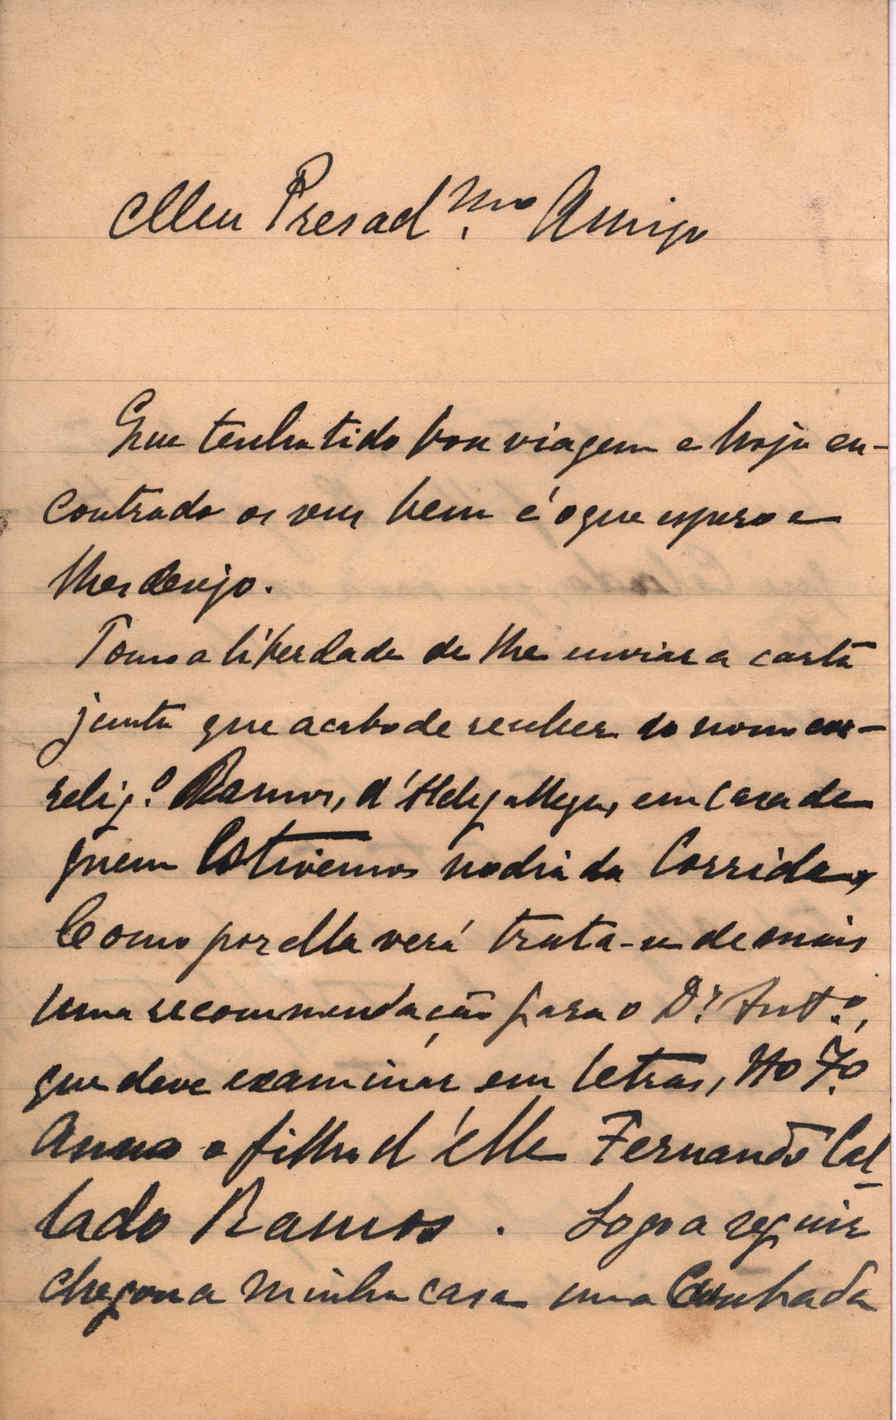 Meu Presad.mo Amigo
Que tenha tido boa viagem e hoje en-
contrado os seus bem é o que espero e
lhes desejo.
Tomo a liberdade de lhe enviar a carta
junta que acabo de receber do nosso cor-
relig.º Ramos, d' em casa de
quem Estivemos no dia da Corrida,
Como por ella verá trata-se de mais
uma recommendação para o Dr. Ant.º,
que deve examinar em letras, no 7.º
Anno o filho d'elle Fernando Cal
lado Ramos. Logo a seguir
chegou a minha casa uma Cunhada